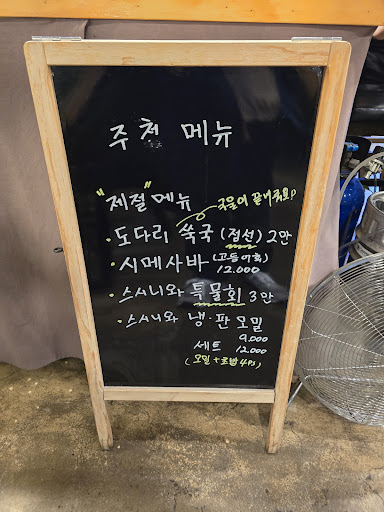 추천 메뉴
"제철" 메뉴 국물이 끝내줘요!
· 도다리 쑥국 (점선) 2만
· 시메사바 (고등어회)
12.000
· 스시니와 특물회 3만
· 스시니와 냉·판 모밀
9.000
세트 12.000
(모밀 + 초밥 4PS)